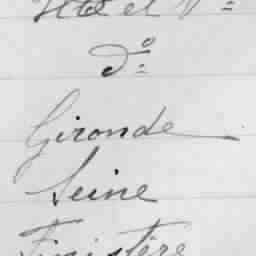 Hte et V=
do
Gironde
Seine
Finistère